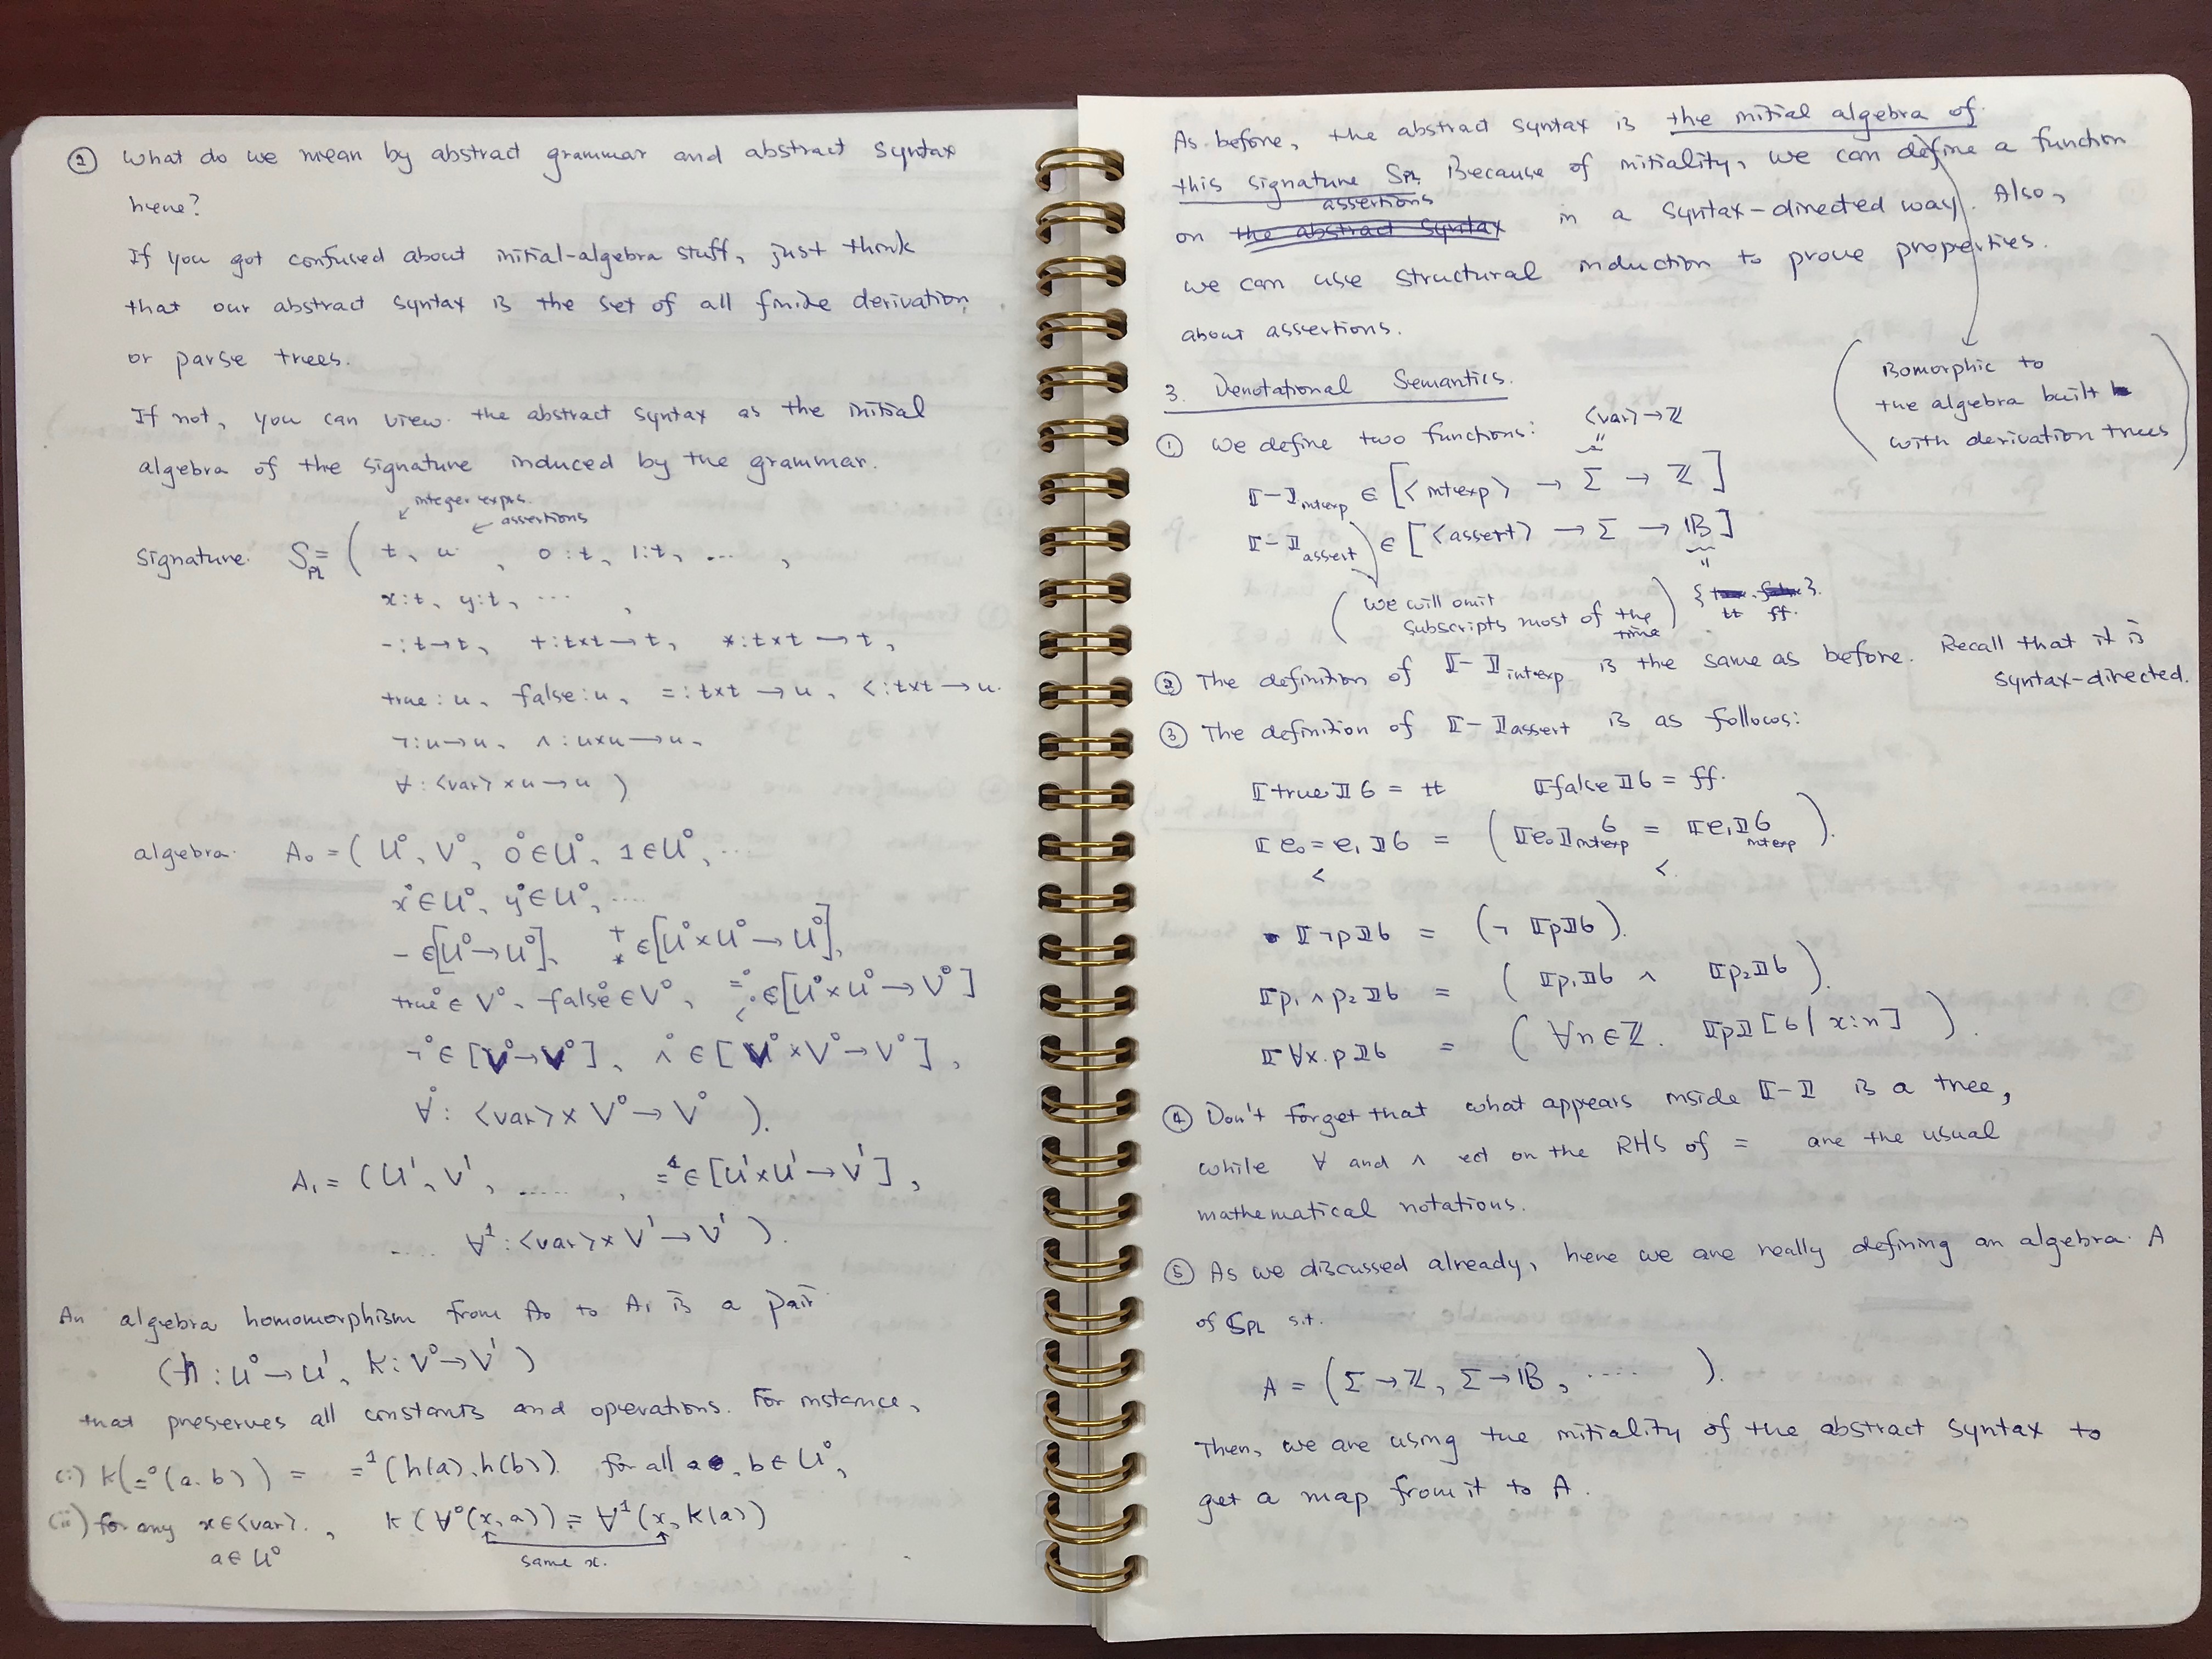 ② What do we mean by abstract grammar and abstract syntax
here?
If you got confused about initial-algebra stuff, just think
that our abstract syntax is the set of all finite derivation
or parse trees.
If not, you can view the abstract syntax as the initial
algebra of the signature induced by the grammar.
integer exprs.
assertions
signature. S_PL = ( t, u , 0:t, 1:t, ... ,
x:t, y:t, ... ,
-:t→t, +:t×t→t, *:t×t→t,
true:u, false:u, =:t×t→u, <:t×t→u.
¬:u→u, ∧:u×u→u,
∀:<var>×u→u )
algebra. A₀ = ( U⁰, V⁰, 0⁰∈U⁰, 1∈U⁰, ...
x⁰∈U⁰, y⁰∈U⁰, ....
-∈[U⁰→U⁰], +
*∈[U⁰×U⁰→U⁰],
true⁰∈V⁰, false⁰∈V⁰, =⁰
<∈[U⁰×U⁰→V⁰]
¬⁰∈[V⁰→V⁰], ∧⁰∈[V⁰×V⁰→V⁰],
∀⁰: <var>×V⁰→V⁰ ).
A₁ = (U¹, V¹, ......, =¹∈[U¹×U¹→V¹],
.... ∀¹:<var>×V¹→V¹ ).
An algebra homomorphism from A₀ to A₁ is a pair
(h:U⁰→U¹, k:V⁰→V¹)
that preserves all constants and operations. For instance,
(i) k(=⁰(a,b)) = =¹(h(a),h(b)) for all a, b∈U⁰,
(ii) for any x∈<var>, k(∀⁰(x,a)) = ∀¹(x,k(a))
a∈U⁰
same x.
As before, the abstract syntax is the initial algebra of
this signature S_PL. Because of initiality, we can define a function
assertions
on the abstract syntax in a syntax-directed way. Also,
we can use structural induction to prove properties
about assertions.
( isomorphic to
the algebra built
with derivation trees )
3. Denotational Semantics.
<var>→ℤ
① We define two functions:
⟦-⟧intexp ∈ [<intexp> → Σ → ℤ]
⟦-⟧assert ∈ [<assert> → Σ → 𝔹]
( we will omit
subscripts most of the
time )
{ tt ff. }
② The definition of ⟦-⟧intexp is the same as before. Recall that it is
syntax-directed.
③ The definition of ⟦-⟧assert is as follows:
⟦true⟧σ = tt ⟦false⟧σ = ff.
⟦e₀ = e₁⟧σ = ( ⟦e₀⟧intexp σ = ⟦e₁⟧intexp σ ).
< <.
⟦¬p⟧σ = (¬ ⟦p⟧σ).
⟦p₁ ∧ p₂⟧σ = ( ⟦p₁⟧σ ∧ ⟦p₂⟧σ ).
⟦∀x.p⟧σ = ( ∀n∈ℤ. ⟦p⟧[σ | x:n] ).
④ Don't forget that what appears inside ⟦-⟧ is a tree,
while ∀ and ∧ ect on the RHS of = are the usual
mathematical notations.
⑤ As we discussed already, here we are really defining an algebra A
of S_PL s.t.
A = (Σ→ℤ, Σ→𝔹, ..... ).
Then, we are using the initiality of the abstract syntax to
get a map from it to A.